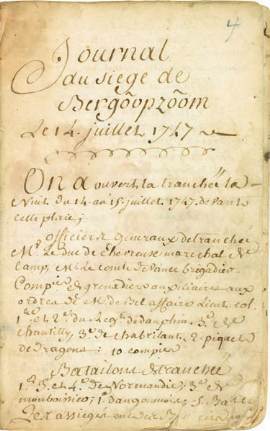 4
Journal
du siege de
Bergôopzôom
Le 14. juillet 1747
On a ouvert la tranchée la
Nuit du 14 au 15 juillet 1747. devant
celle place;
officiers generaux de tranchée
Mr. Le duc de Chevreuse marechal de
Camp, Mr. le comte de brigadier
Compies. de grenadiers auxiliaires aux
ordres de Mr. de Bel affaire Lieut. col.
1er. et 2e. du Regt. de dauphin, 3e. de
chantilly, 3e. de chabrilant, 2. piquets
de dragons; 10 compies
Batailons de tranchée
1er. 3. et 4e. de Normandie; 3. de
montboissier; 1. dangoumois, 5. Bat
Les assiegés ont